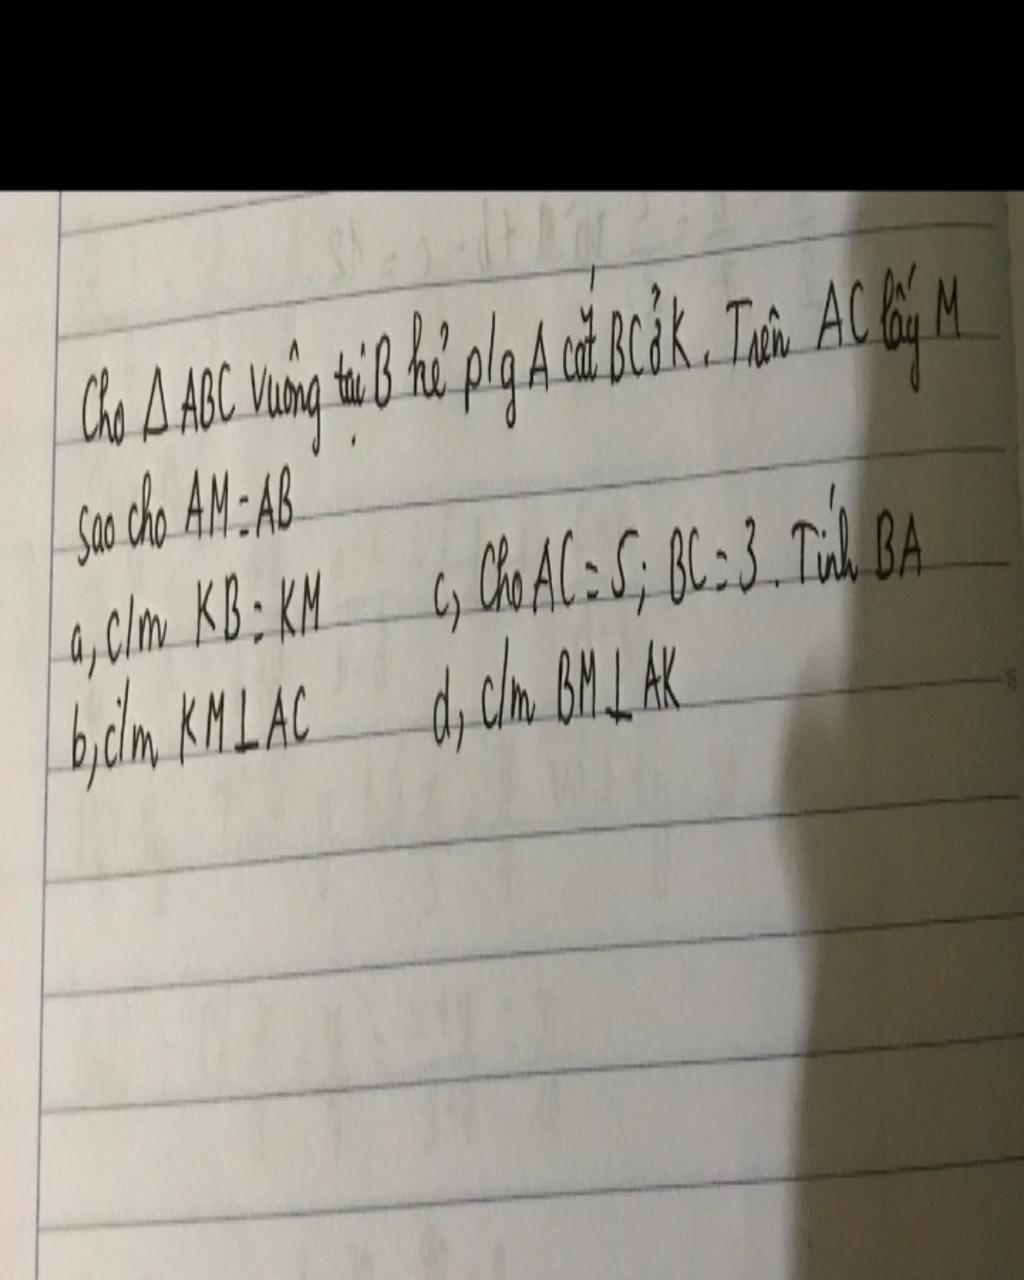 Cho Δ ABC vuông tại B kẻ p/g A cắt BC ở K. Trên AC lấy M
sao cho AM = AB
a, c/m KB = KM c, Cho AC = 5; BC = 3. Tính BA
b, c/m KM⊥AC d, c/m BM⊥AK